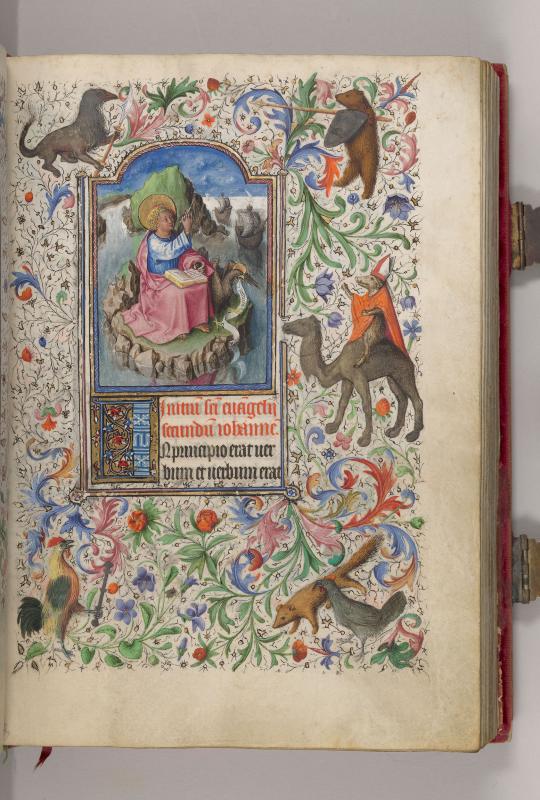 Initiũ scĩ euãgelij
secundũ iohanne.
In principio erat uer
bum et uerbum erat